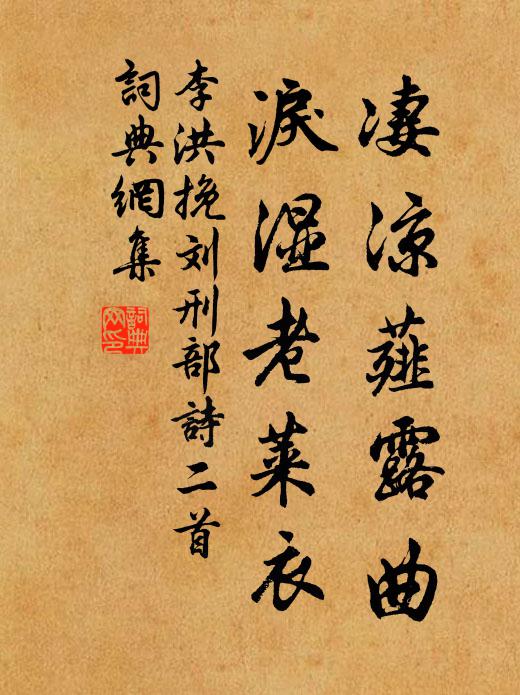 凄凉薤露曲
淚湿老莱衣
李洪挽刘刑部詩二首
詞典網集
詞典
网印